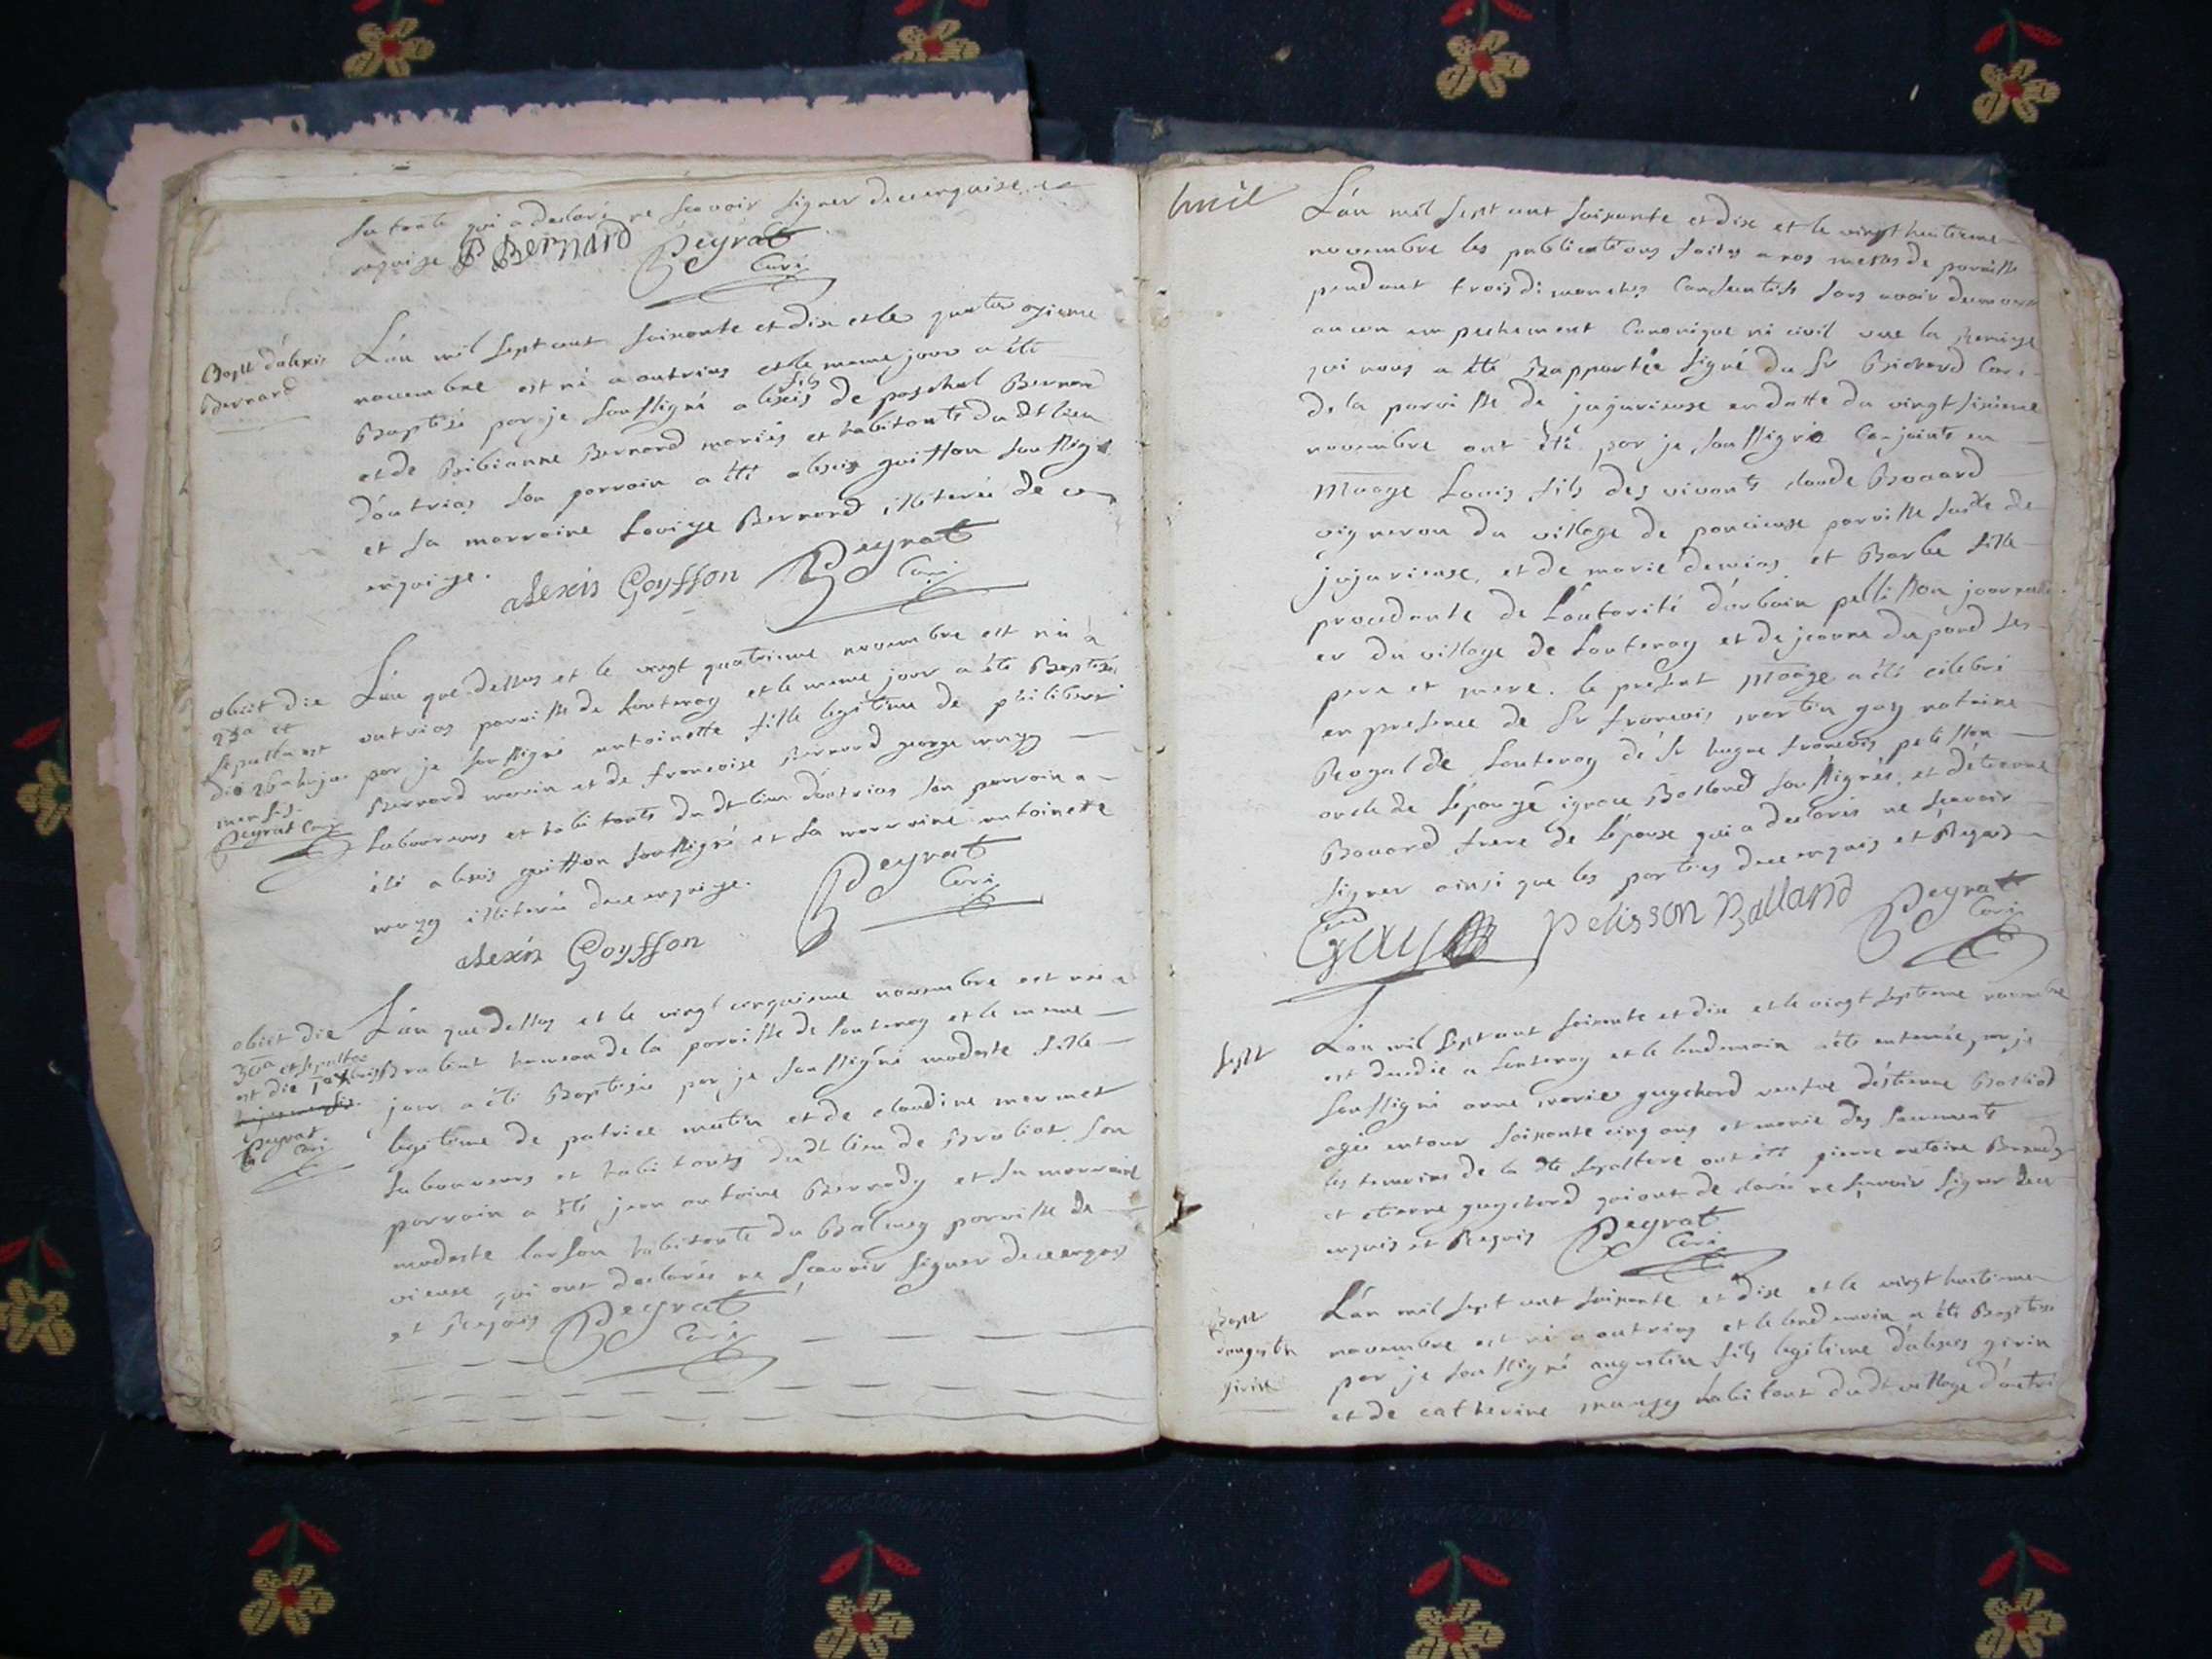 sa tante qui a declaré ne scavoir signer de ce enquise
requise P Bernard Peyrat
Curé
Bapt d'alexis
Bernard
L'an mil sept cent soixante et dix et le quatorzieme
novembre est né a outrias et le meme jour a été
Baptisé par je soussigné alexis fils de paschal Bernard
et de Bibianne Bernard mariés et habitants du dt lieu
d'outrias son parrain a été alexis guisson soussigné
et sa marraine Louise Bernard illiterée de ce
enquise.
alexis Goysson Peyrat
Curé
obiit die
sepulta est
die 26a hujus
mensis
Peyrat Curé
L'an que dessus et le vingt quatrieme novembre est née a
outrias paroisse de Lantenay et le meme jour a été Baptisée
par je soussigné antoinette fille legitime de philibert
Bernard et de francoise Bernard george
laboureurs et habitants du dt lieu d'outrias son parrain a
été alexis guisson soussigné et sa marraine antoinette
illiterée de ce enquise.
Peyrat
Curé
alexis Goysson
obiit die
30a et sepulta
est die
Peyrat
Curé
L'an que dessus et le vingt cinquieme novembre est née a
hameau de la paroisse de Lantenay et le meme
jour a été Baptisée par je soussigné modeste fille
legitime de patrice mutin et de claudine mermet
laboureurs et habitants du dt lieu de son
parrain a été jean antoine et sa marraine
modeste habitante du Balmey paroisse de
vieuse qui ont declarés ne scavoir signer de ce enquis
et Requis Peyrat
Curé
L'an mil sept cent soixante et dix et le vingt huitieme
novembre les publications faites a nos messes de paroisse
pendant trois dimanches consecutifs sans avoir
aucun empechement Canonique ni civil vue la Remise
qui nous a été Rapportée signé du Sr Bichard Curé
de la paroisse de jujurieuse en datte du vingt sixieme
novembre ont été par je soussigné Conjoints en
Maage Louis fils des vivants claude Bouard
vigneron du village de poncieuse paroisse susdte de
jujurieuse, et de marie et Barbe fille
procedante de L'autorité d'urbain pellisson journali
er du village de Lantenay et de jeanne dupond ses
pere et mere. le present Maage a été célébré
en presence de Sr francois martin gay notaire
Royal de Lantenay de Sr hugue francois pelisson
oncle de l'épouse ignace Balland soussignés, et d'étienne
Bouard frere de l'épouse qui a declarés ne scavoir
signer ainsi que les parties de ce enquis et Requis
Gay Pelisson Balland Peyrat
Curé
Sept
L'an mil sept cent soixante et dix et le vingt septieme novembre
est decedée a Lantenay et le lendemain a été enterrée par je
soussigné anne marie guychard veufve d'étienne
agée entour soixante cinq ans et munie des sacrements
les temoins de la dte sepulture ont été pierre antoine
et etienne guychard qui ont declarés ne scavoir signer de ce
enquis et Requis Peyrat
Curé
Bapt
d'augustin
girin
L'an mil sept cent soixante et dix et le vingt huitieme
novembre est né a outrias et le lendemain a été Baptisé
par je soussigné augustin fils legitime d'alexis girin
et de catherine habitant du dt village d'outri